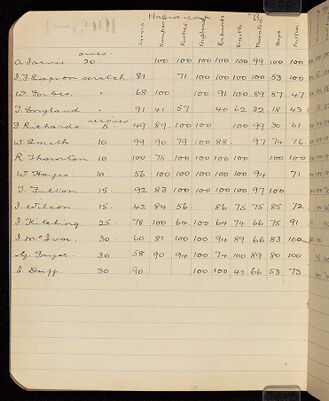 Handicap
Jarvis Simpson Forbes England Richards Smith Thornton Hays Fulton
owes
A. Jarvis 20. 100 100 100 100 100 99 100 100
J. F. Simpson scratch 81 71 100 100 100 100 53 100
W. Forbes. " 68 100 100 91 100 89 87 47
T. England " 91 41 57 40 62 32 18 43
receives
F. Richards 5 49 89 100 100 100 99 30 61
W Smith 10 99 90 79 100 88 97 74 76
R Thornton 10 100 75 100 100 100 100 100 100
W Hays 10 56 100 100 100 100 100 94 71
T. Fulton 15 92 83 100 100 100 100 97 100
J. Wilson 15 42 84 56 86 75 75 85 72
J. Kitching 25 78 100 64 100 64 74 66 75 91
J. McIvor 30 60 81 100 100 94 89 66 83 100
G. Fryer 30 58 90 94 100 74 100 89 80 100
J. Duff 30 90 100 100 42 66 53 73